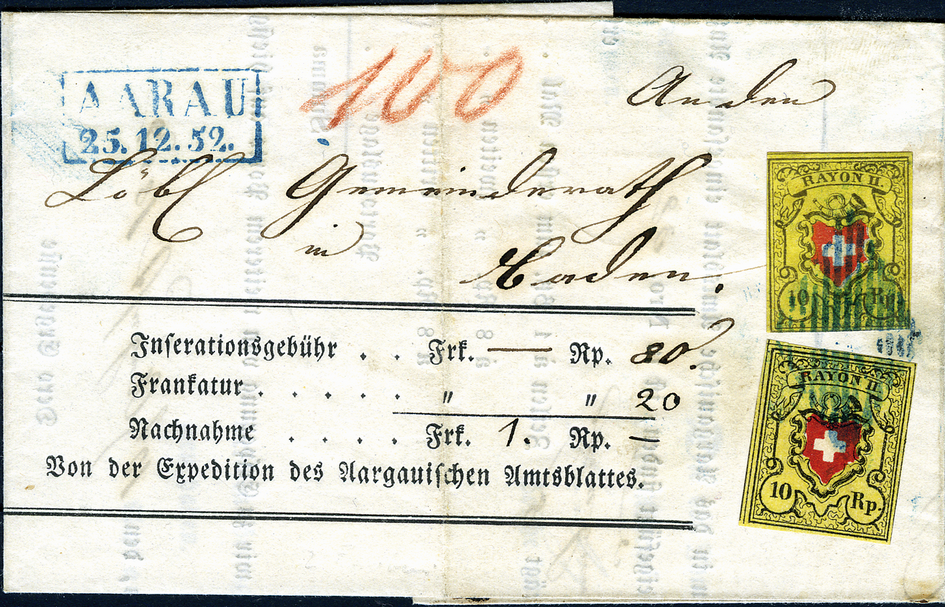 AARAU
25.12.52.
100
An den
Löbl Gemeinderath
in
Baden.
RAYON II.
10 Rp.
RAYON II.
10 Rp.
Inserationsgebühr . . Frk. — Rp. 80.
Frankatur . . . . . " " 20
Nachnahme . . . . Frk. 1. Rp. —
Von der Expedition des Aargauischen Amtsblattes.